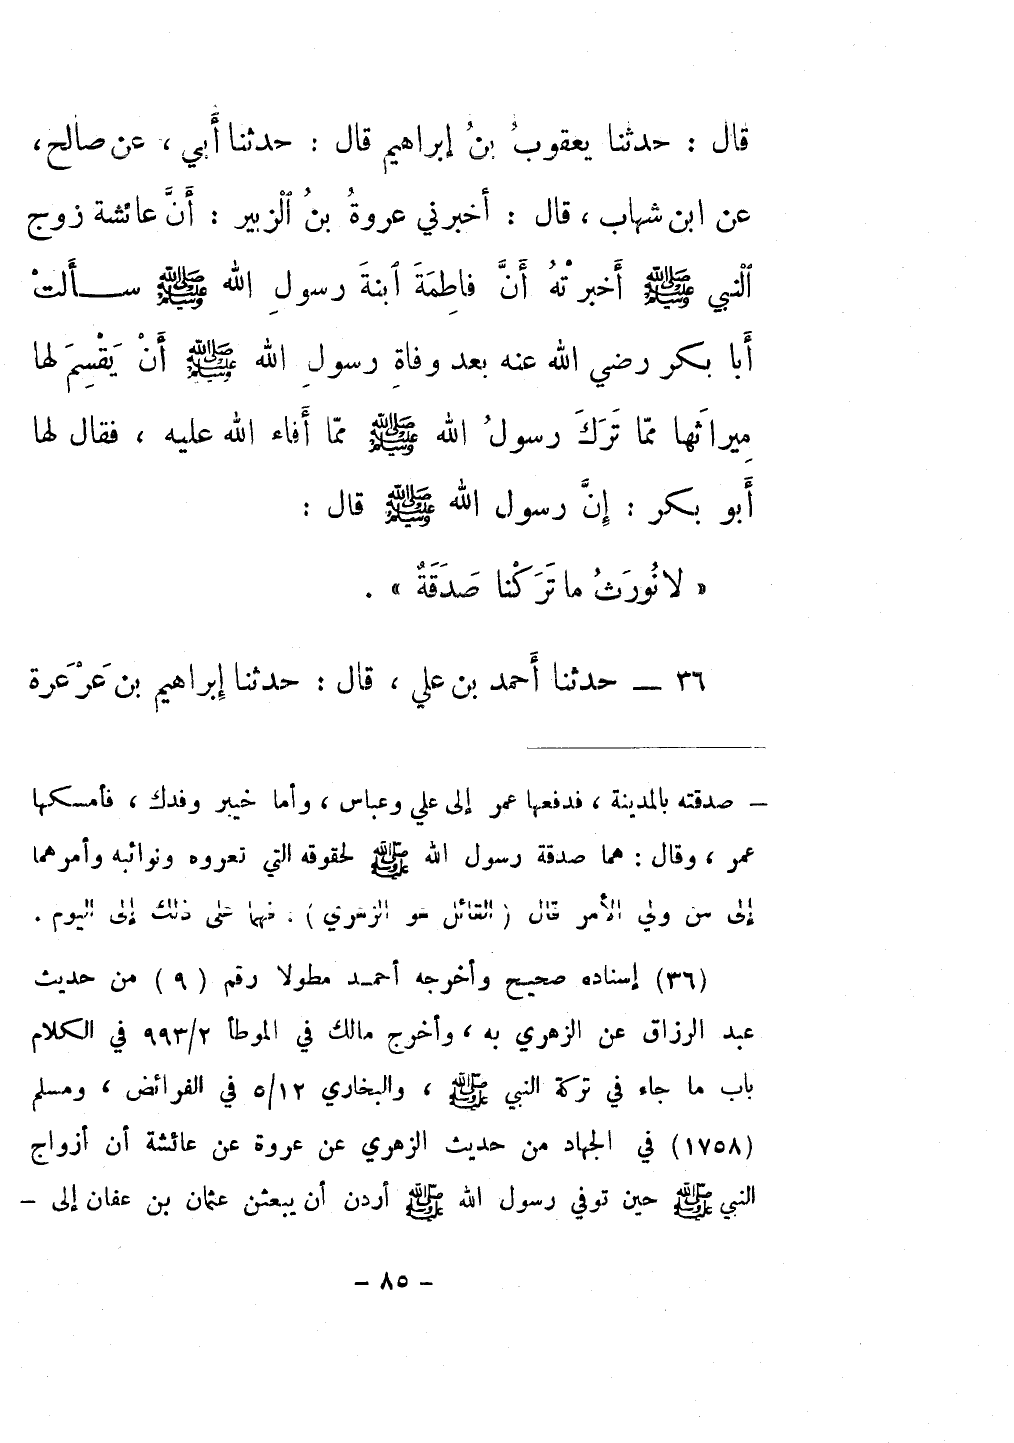 قال : حدثنا يعقوبُ بنُ إبراهيم قال : حدثنا أَبي ، عن صالح،
عن ابن شهاب ، قال : أخبرني عروةُ بنُ ٱلزبير : أَنَّ عائشة زوج
ٱلنبي ﷺ أَخبرتْهُ أَنَّ فاطِمَةَ ٱبنةَ رسولِ الله ﷺ ســأَلتْ
أَبا بكر رضي الله عنه بعد وفاةِ رسولِ الله ﷺ أَنْ يَقْسِمَ لها
مِيراثَها ممّا تَرَكَ رسولُ الله ﷺ ممّا أَفاء الله عليه ، فقال لها
أَبو بكر : إِنَّ رسول الله ﷺ قال :
« لا نُورَثُ ما تَرَكْنا صَدَقَةٌ » .
٣٦ — حدثنا أَحمد بن علي ، قال : حدثنا إبراهيم بن عَرْعَرة
— صدقته بالمدينة ، فدفعها عمر إلى علي وعباس ، وأما خيبر وفدك ، فأمسكها
عمر ، وقال : هما صدقة رسول الله ﷺ لحقوقه التي تعروه ونوائبه وأمرهما
إلى من ولي الأمر قال ( القائل هو الزهري ) . فهما على ذلك إلى اليوم .
(٣٦) إسناده صحيح وأخرجه أحمـد مطولا رقم ( ٩ ) من حديث
عبد الرزاق عن الزهري به ، وأخرج مالك في الموطأ ٩٩٣/٢ في الكلام
باب ما جاء في تركة النبي ﷺ ، والبخاري ٥/١٢ في الفرائض ، ومسلم
(١٧٥٨) في الجهاد من حديث الزهري عن عروة عن عائشة أن أزواج
النبي ﷺ حين توفي رسول الله ﷺ أردن أن يبعثن عثمان بن عفان إلى —
— ٨٥ —